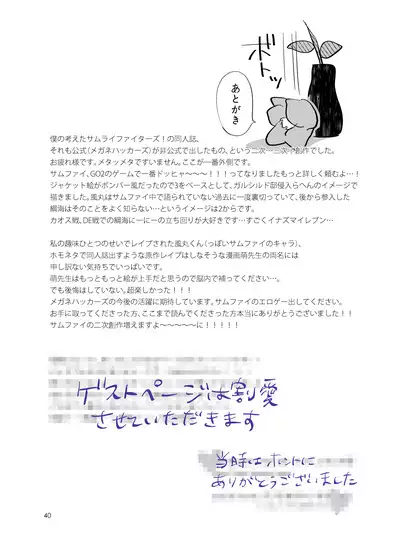 ボトッ
あとがき
僕の考えたサムライファイターズ！の同人誌、
それも公式(メガネハッカーズ)が非公式で出したもの、という二次…三次？創作でした。
お疲れ様です。メタッメタですいません。ここが一番外側です。
サムファイ、GO2のゲームで一番ドッヒャ～～～！！！ってなりましたもっと詳しく頼むよ…！
ジャケット絵がボンバー風だったので3をベースとして、ガルシルド邸侵入らへんのイメージで
描きました。風丸はサムファイ中で語られていない過去に一度裏切っていて、後から参入した
綱海はそのことをよく知らない…というイメージは2からです。
カオス戦、DE戦での綱海に一に一の立ち回りが大好きです…すごくイナズマイレブン…
私の趣味ひとつのせいでレイプされた風丸くん(っぽいサムファイのキャラ)、
ホモネタで同人誌出すような原作レイプはしなそうな漫画萌先生の両名には
申し訳ない気持ちでいっぱいです。
萌先生はもっともっと絵が上手だと思うので脳内で補ってください…。
でも後悔はしていない。超楽しかった！！！
メガネハッカーズの今後の活躍に期待しています。サムファイのエロゲー出してください。
お手に取ってくださった方、ここまで読んでくださった方本当にありがとうございました！！
サムファイの二次創作増えますよ～～～～～に！！！！！
ゲストページは割愛
させていただきます
当時はホントに
ありがとうございました
40